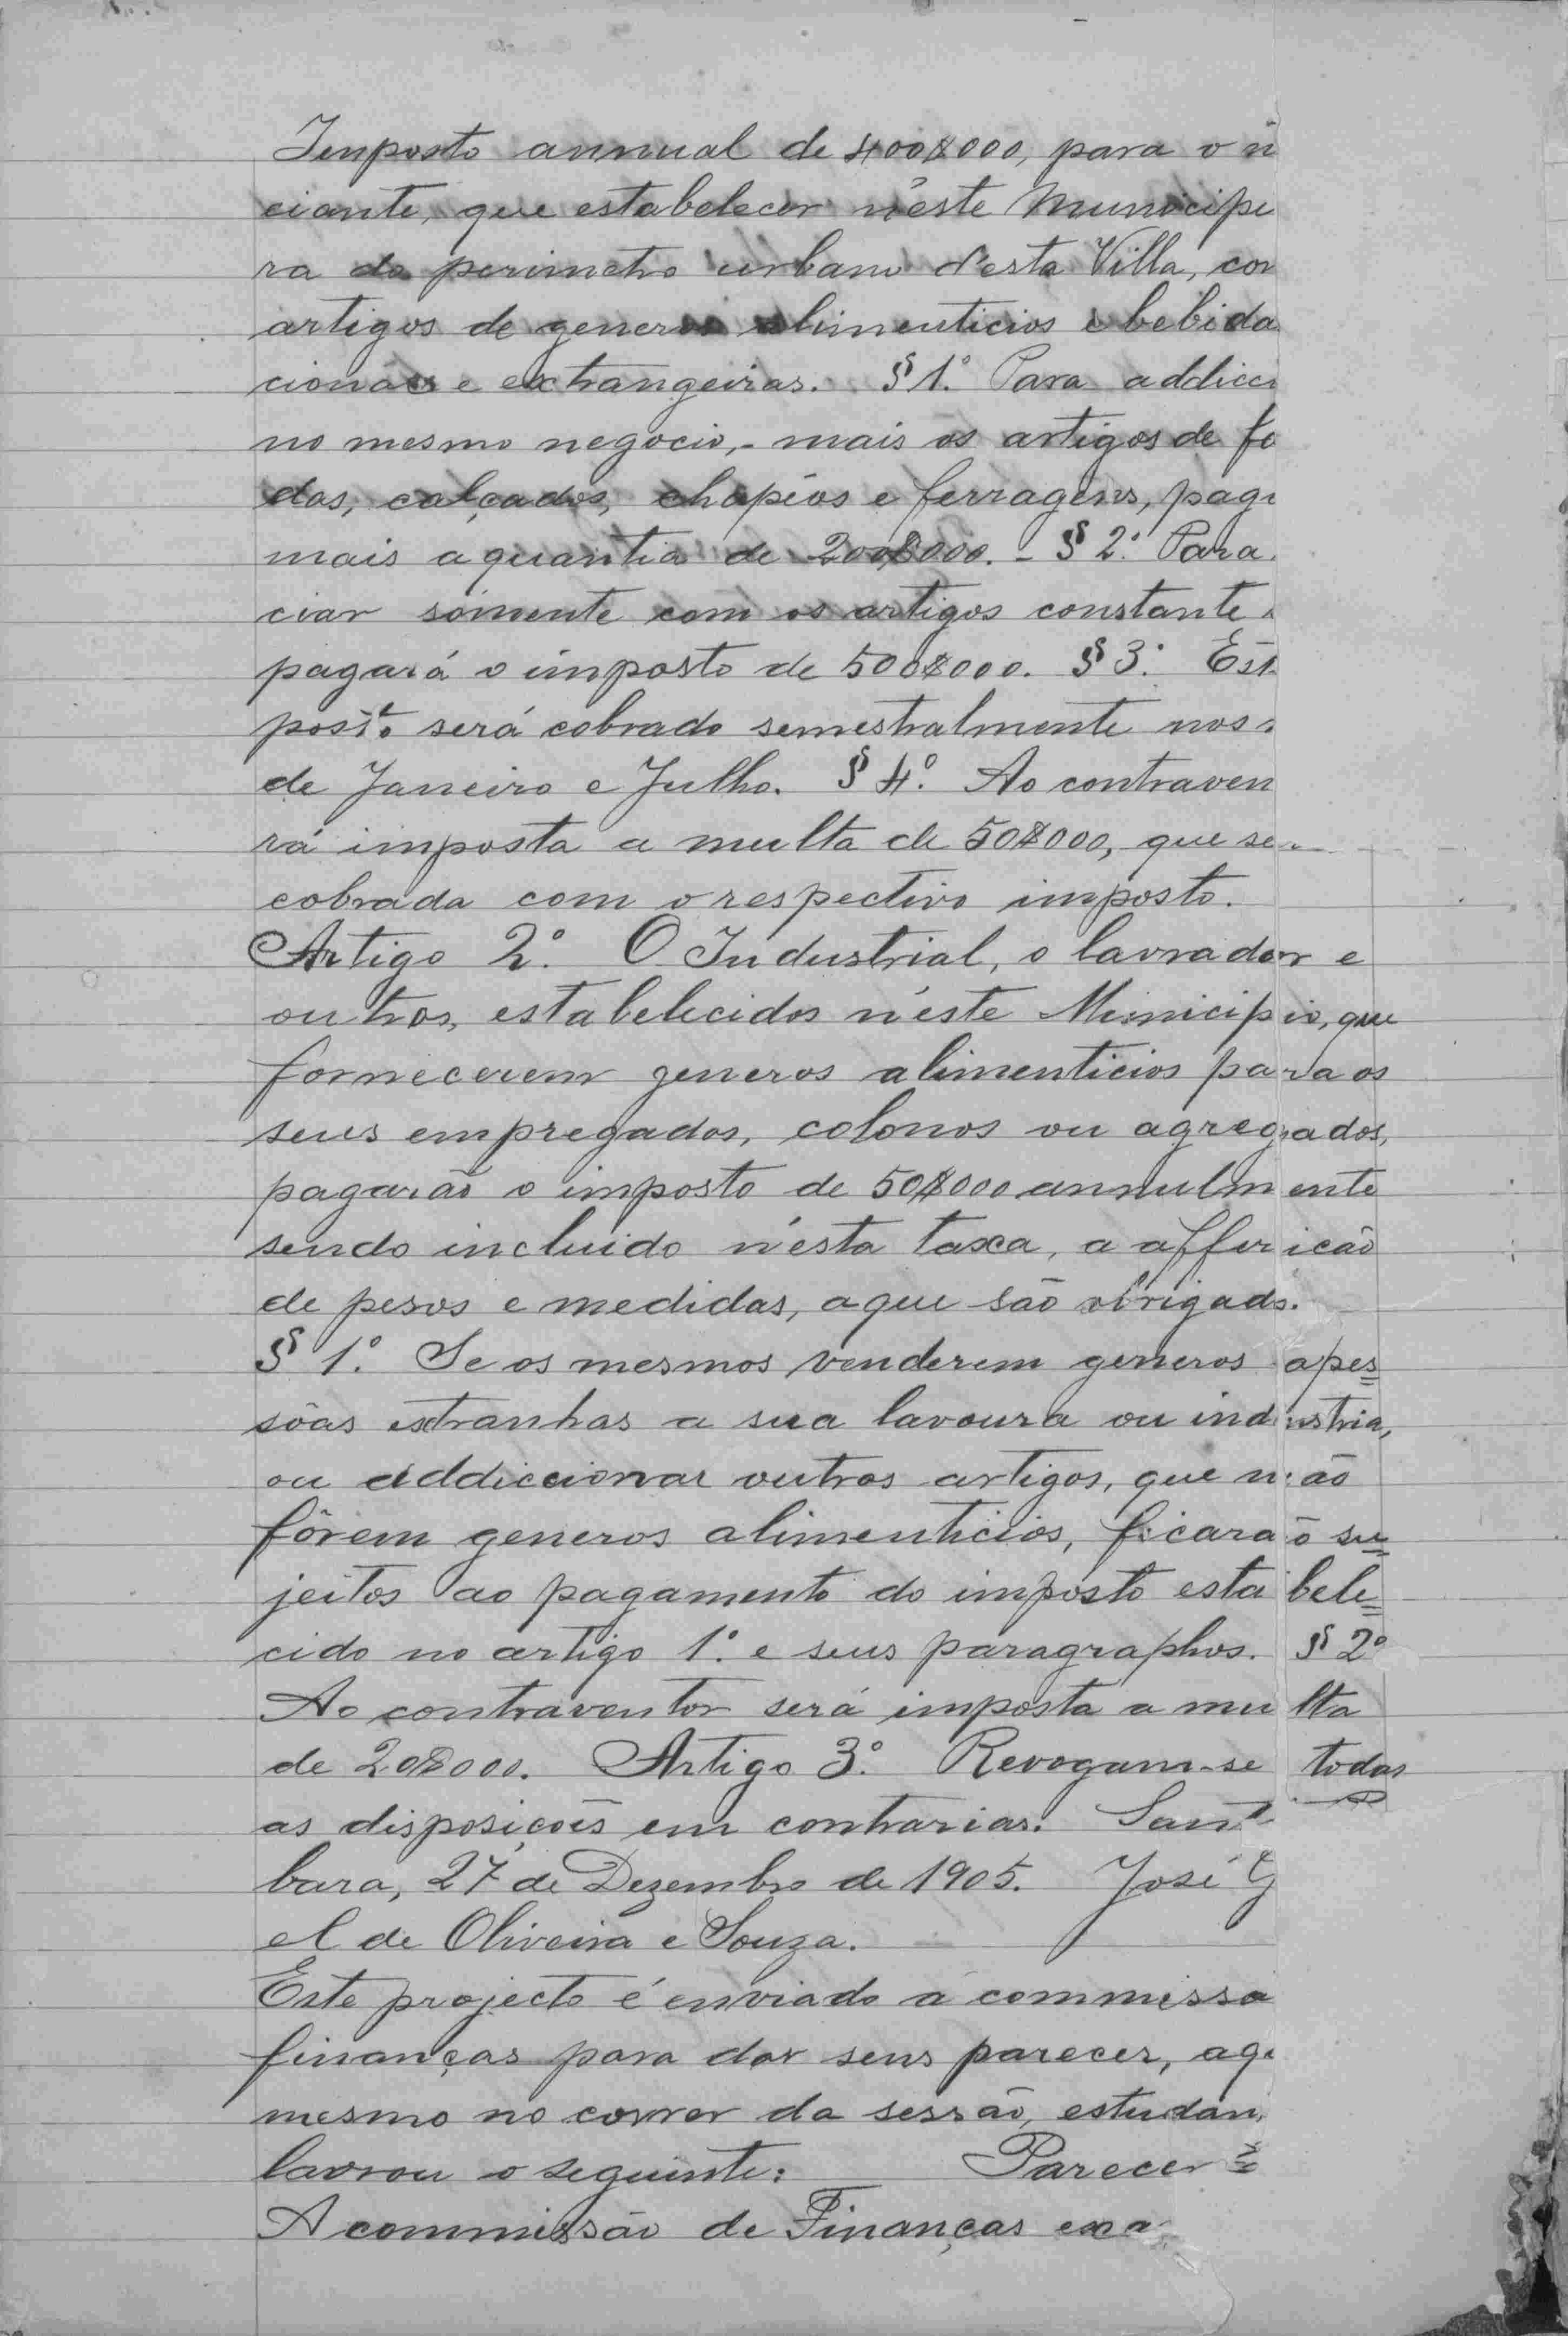 Imposto annual de 400$000, para o n
ciante, que estabelecer n'este Municipi
ra do perimetro urbano d'esta Villa, con
artigos de generos alimenticios e bebida
cionaes e extrangeiras. § 1º. Para addicci
no mesmo negocio,- mais os artigos de fa
das, calçados, chapéos e ferragens, paga
mais a quantia de 200$000. - § 2º. Para
ciar sómente com os artigos constante
pagará o imposto de 500$000. § 3º. Est
posto será cobrado semestralmente nos
de Janeiro e Julho. § 4º. Ao contraven
rá imposta a multa de 50$000, que se
cobrada com o respectivo imposto.
Artigo 2º. O Industrial, o lavrador e
outros, estabelecidos n'este Municipio, que
fornecerem generos alimenticios para os
seus empregados, colonos ou agregados,
pagarão o imposto de 50$000 annulmente
sendo incluido n'esta taxa, a afferição
de pesos e medidas, a que são obrigads.
§ 1º. Se os mesmos venderem generos a pes=
sôas extranhas a sua lavoura ou industria,
ou addiccionar outros artigos, que não
fôrem generos alimenticios, ficarão su=
jeitos ao pagamento do imposto estabele=
cido no artigo 1º. e seus paragraphos. § 2º
Ao contraventor será imposta a multa
de 20$000. Artigo 3º. Revogam-se todas
as disposições em contrarias. Sant
bara, 27 de Dezembro de 1905. José G
el de Oliveira e Souza.
Este projecto é enviado á commissã
finanças para dar seus parecer, a q
mesmo no correr da sessão, estudan
lavrou o seguinte: Parecer =
A commissão de Finanças exa